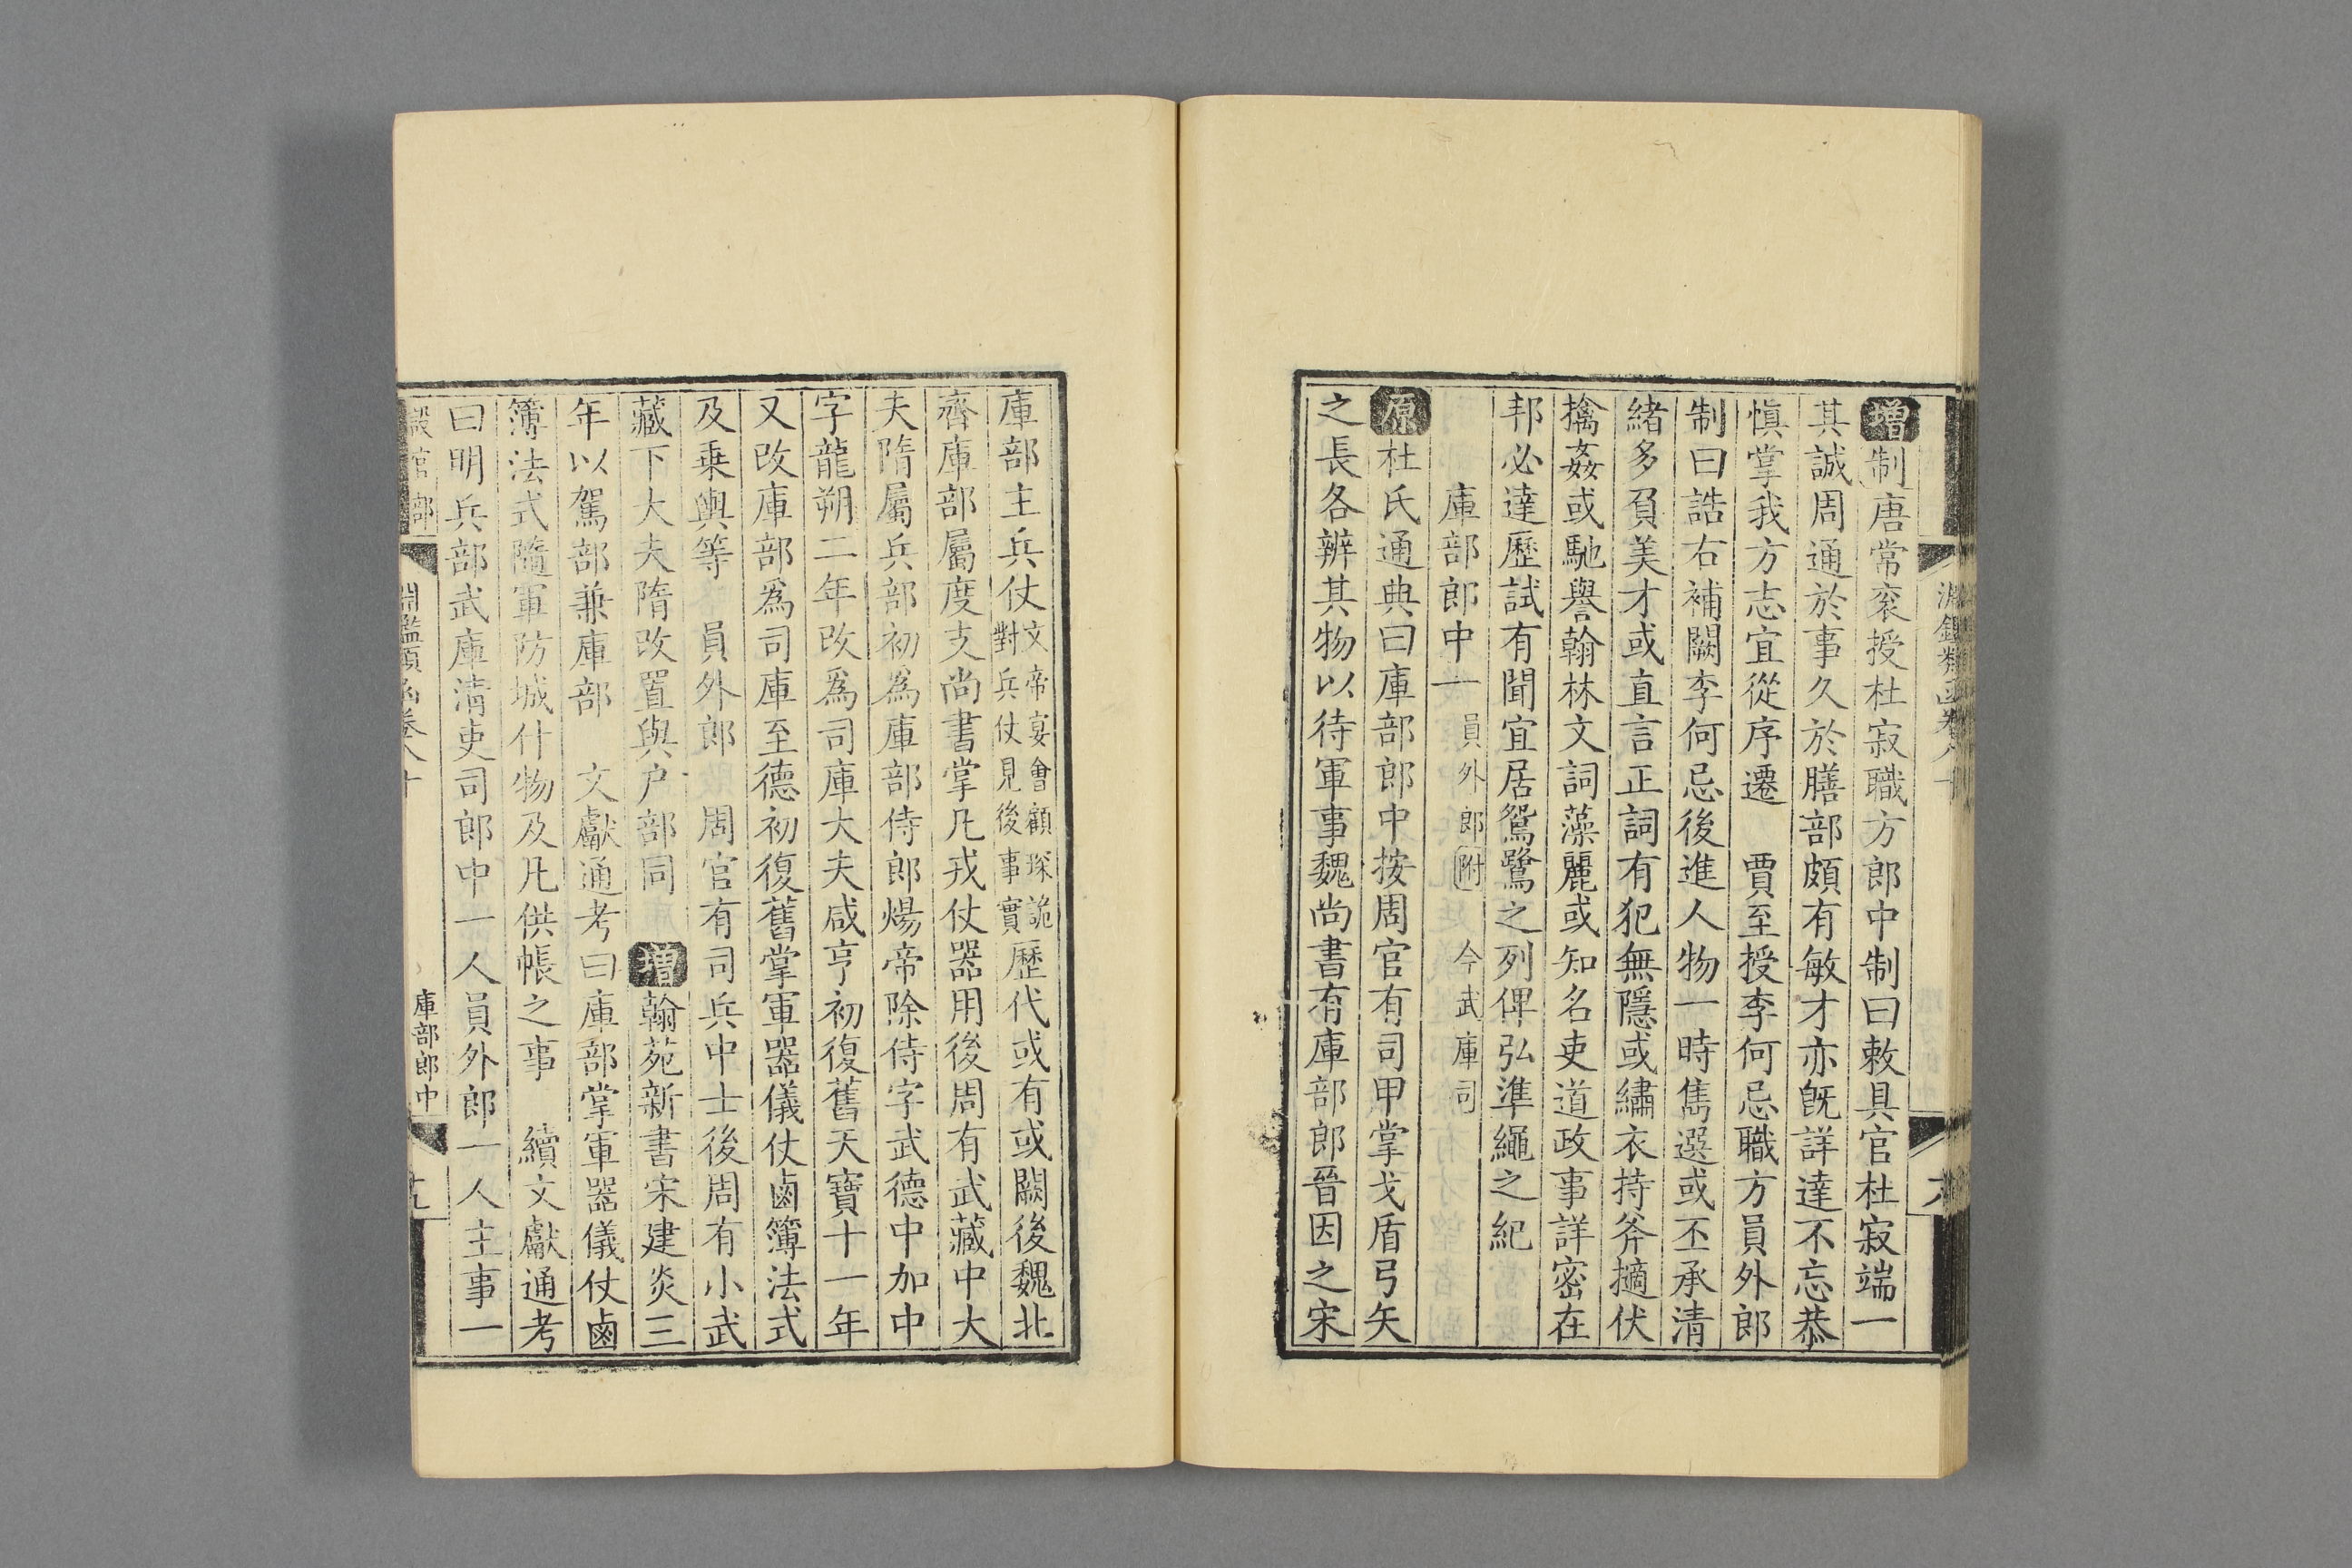 增制唐常衮授杜寂職方郎中制曰敕具官杜寂端一
其誠周通於事久於膳部頗有敏才亦旣詳達不忘恭
愼掌我方志宜從序遷　賈至授李何忌職方員外郎
制曰誥右補闕李何忌後進人物一時雋選或丕承清
緒多負美才或直言正詞有犯無隱或繡衣持斧擿伏
擒姦或馳譽翰林文詞藻麗或知名吏道政事詳密在
邦必達歷試有聞宜居鴛鷺之列俾弘準繩之紀
庫部郎中一　員外郎附　今武庫司
原杜氏通典曰庫部郎中按周官有司甲掌戈盾弓矢
之長各辨其物以待軍事魏尚書有庫部郎晉因之宋
庫部主兵仗文帝宴會顧琛詭對兵仗見後事實歷代或有或闕後魏北
齊庫部屬度支尚書掌凡戎仗器用後周有武藏中大
夫隋屬兵部初爲庫部侍郎煬帝除侍字武德中加中
字龍朔二年改爲司庫大夫咸亨初復舊天寶十一年
又改庫部爲司庫至德初復舊掌軍器儀仗鹵簿法式
及乗輿等　員外郎　周官有司兵中士後周有小武
藏下大夫隋改置與户部同　增翰苑新書宋建炎三
年以駕部兼庫部　文獻通考曰庫部掌軍器儀仗鹵
簿法式隨軍防城什物及凡供帳之事　續文獻通考
曰明兵部武庫清吏司郎中一人員外郎一人主事一
淵鑑類函卷八十
庫部郎中